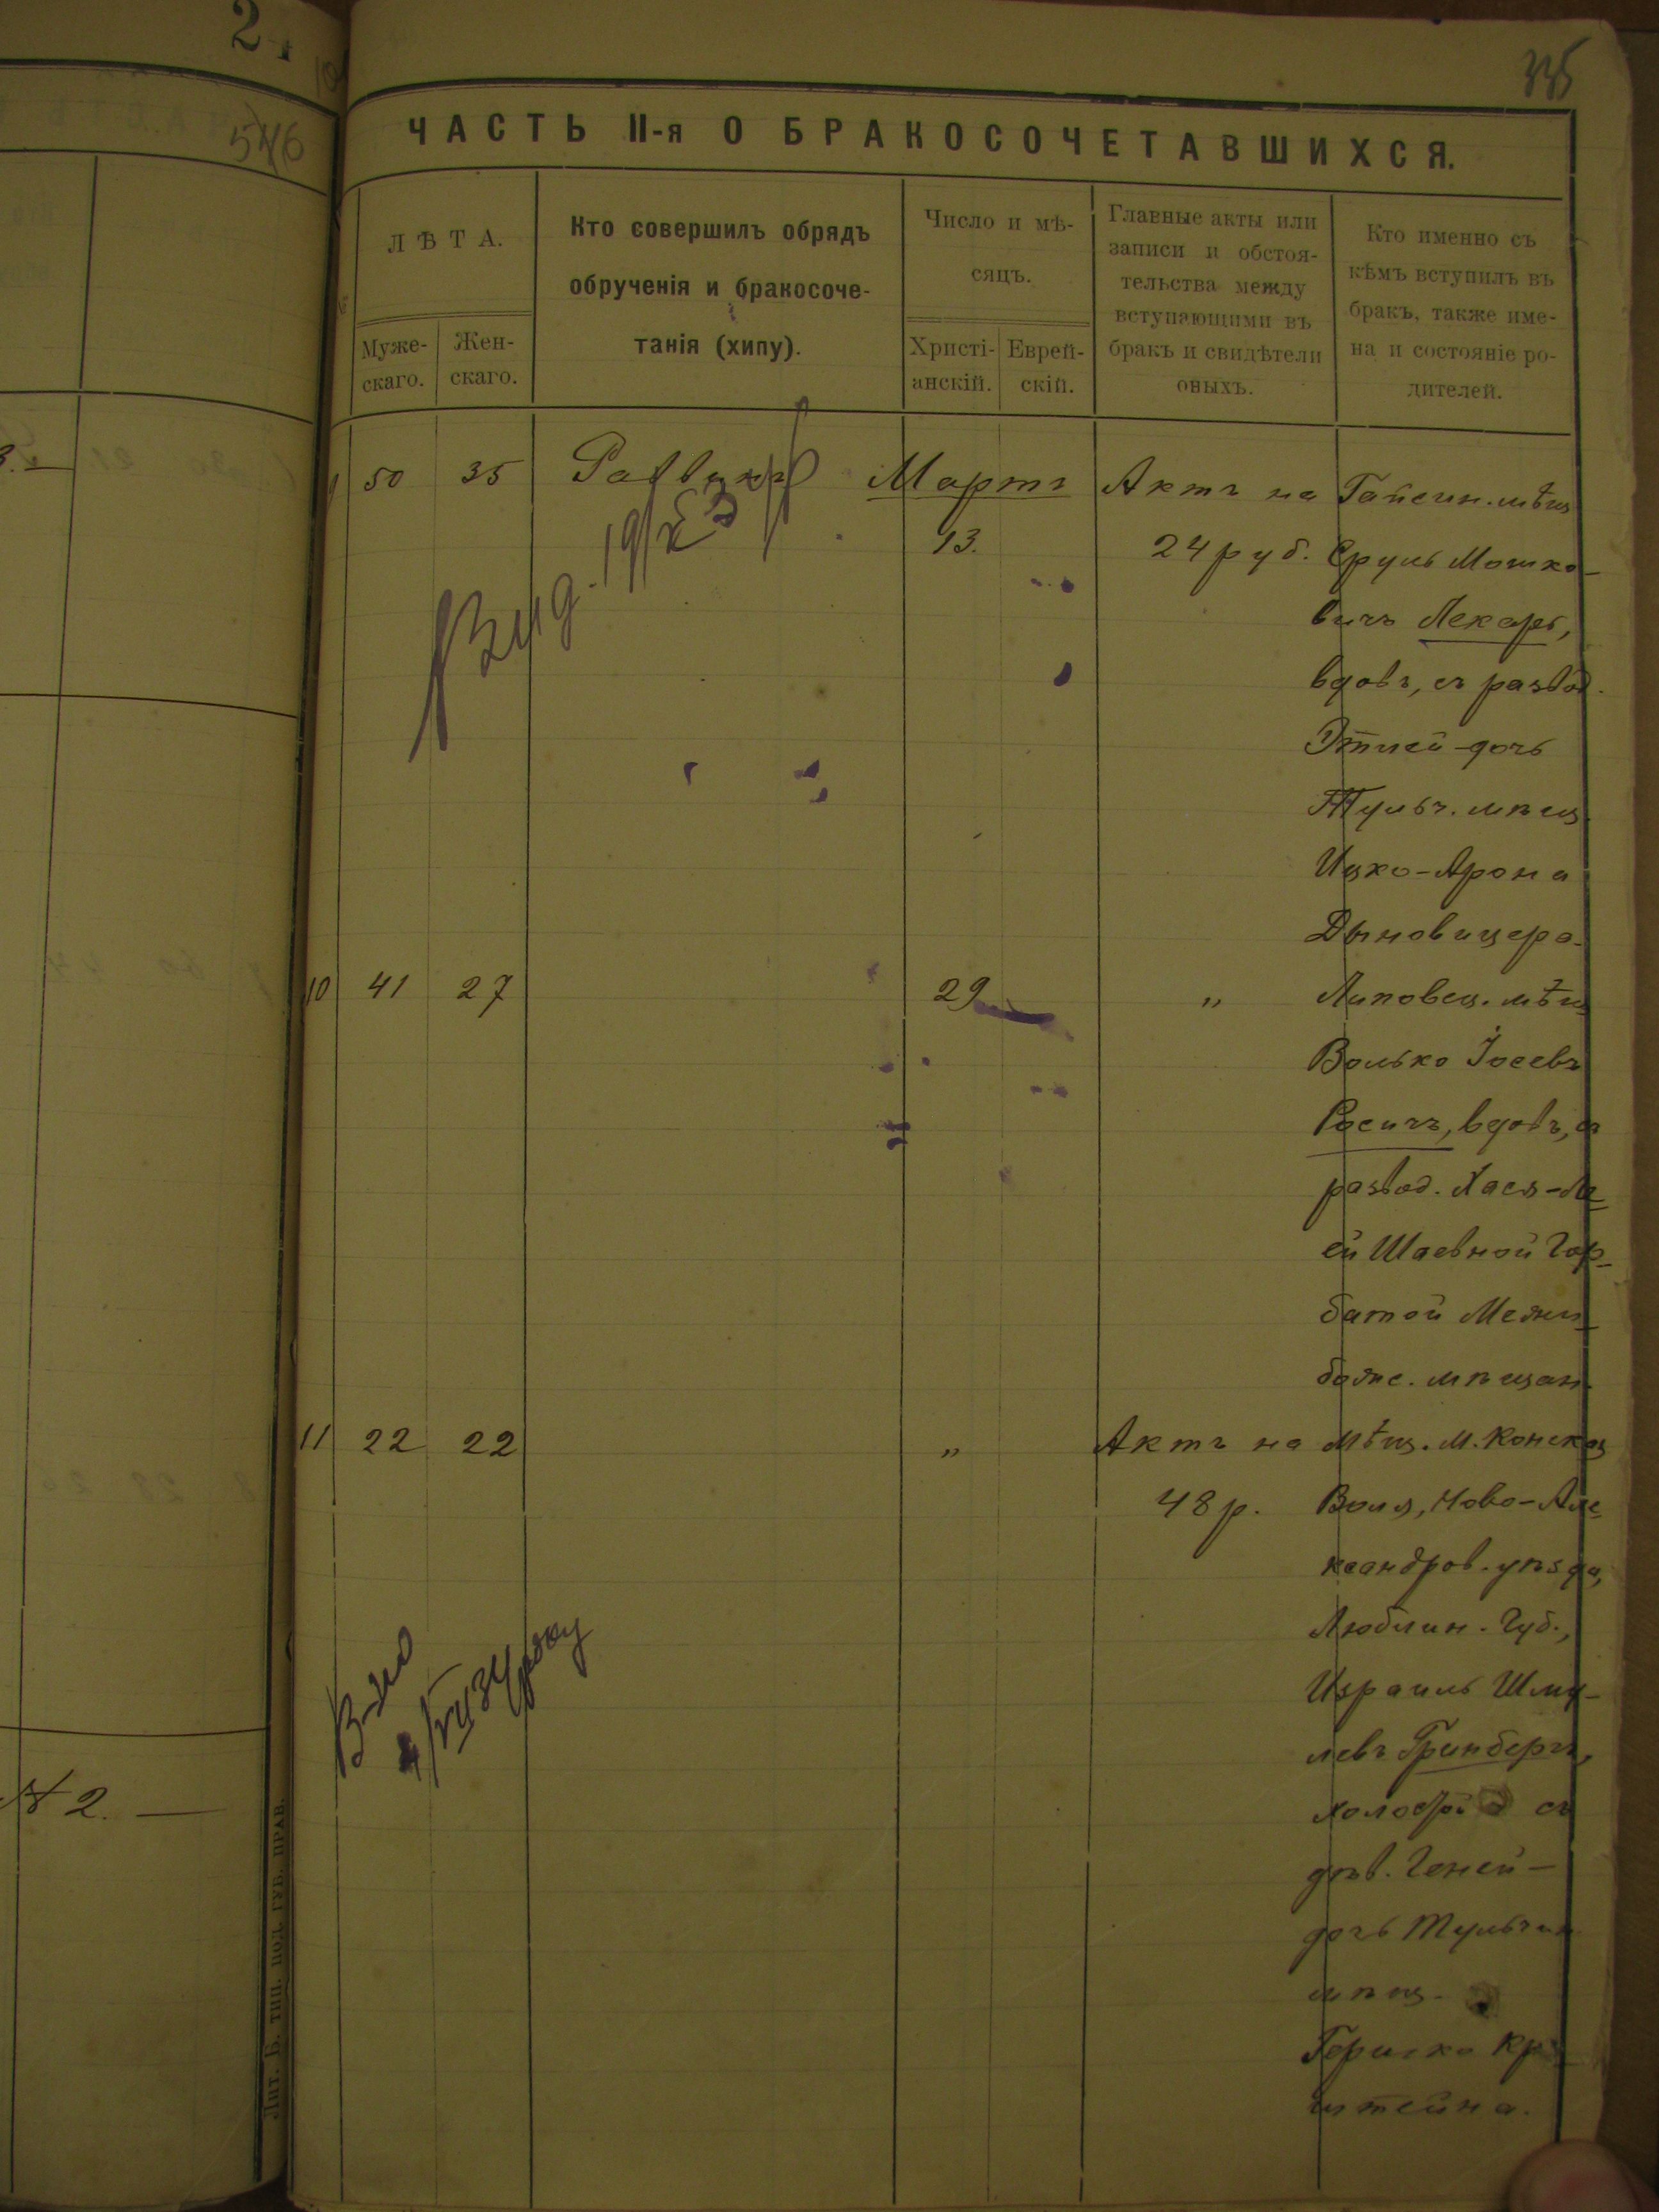 24
546
335
ЧАСТЬ II-я О БРАКОСОЧЕТАВШИХСЯ.
ЛѢТА.
Муже-
скаго.
Жен-
скаго.
Кто совершилъ обрядъ
обрученія и бракосоче-
танія (хипу).
Число и мѣ-
сяцъ.
Христі-
анскій.
Еврей-
скій.
Главные акты или
записи и обстоя-
тельства между
вступающими въ
бракъ и свидѣтели
оныхъ.
Кто именно съ
кѣмъ вступилъ въ
бракъ, также име-
на и состояніе ро-
дителей.
50 35 Раввинъ Мартъ Актъ на Гайсин. мѣщ
13. 24 руб. Сруль Мошко-
вичъ Лекарь,
вдовъ, съ развод.
Этлей-дочь
Тульч. мѣщ.
Ицко-Арона
Дыновицера.
Вид. 19/X 3
10 41 27 29 " Липовец. мѣщ
Волько Іосевъ
Росичъ, вдовъ, съ
развод. Хася-Ле-
ей Шаевной Гор-
батой Межи-
божс. мѣщан.
11 22 22 " Актъ на Мѣщ. м. Конской
48 р. Воля, Ново-Але-
ксандров. уѣзда,
Люблин. Губ.,
Израиль Шму-
левъ Гринбергъ,
холостой съ
дѣв. Геней-
дочь Тульчин
мѣщ.
Гершко Кр
штейна.
В-но
4/VII 34 року
№ 2. —
Лит. Б. тип. под. ГУБ. ПРАВ.